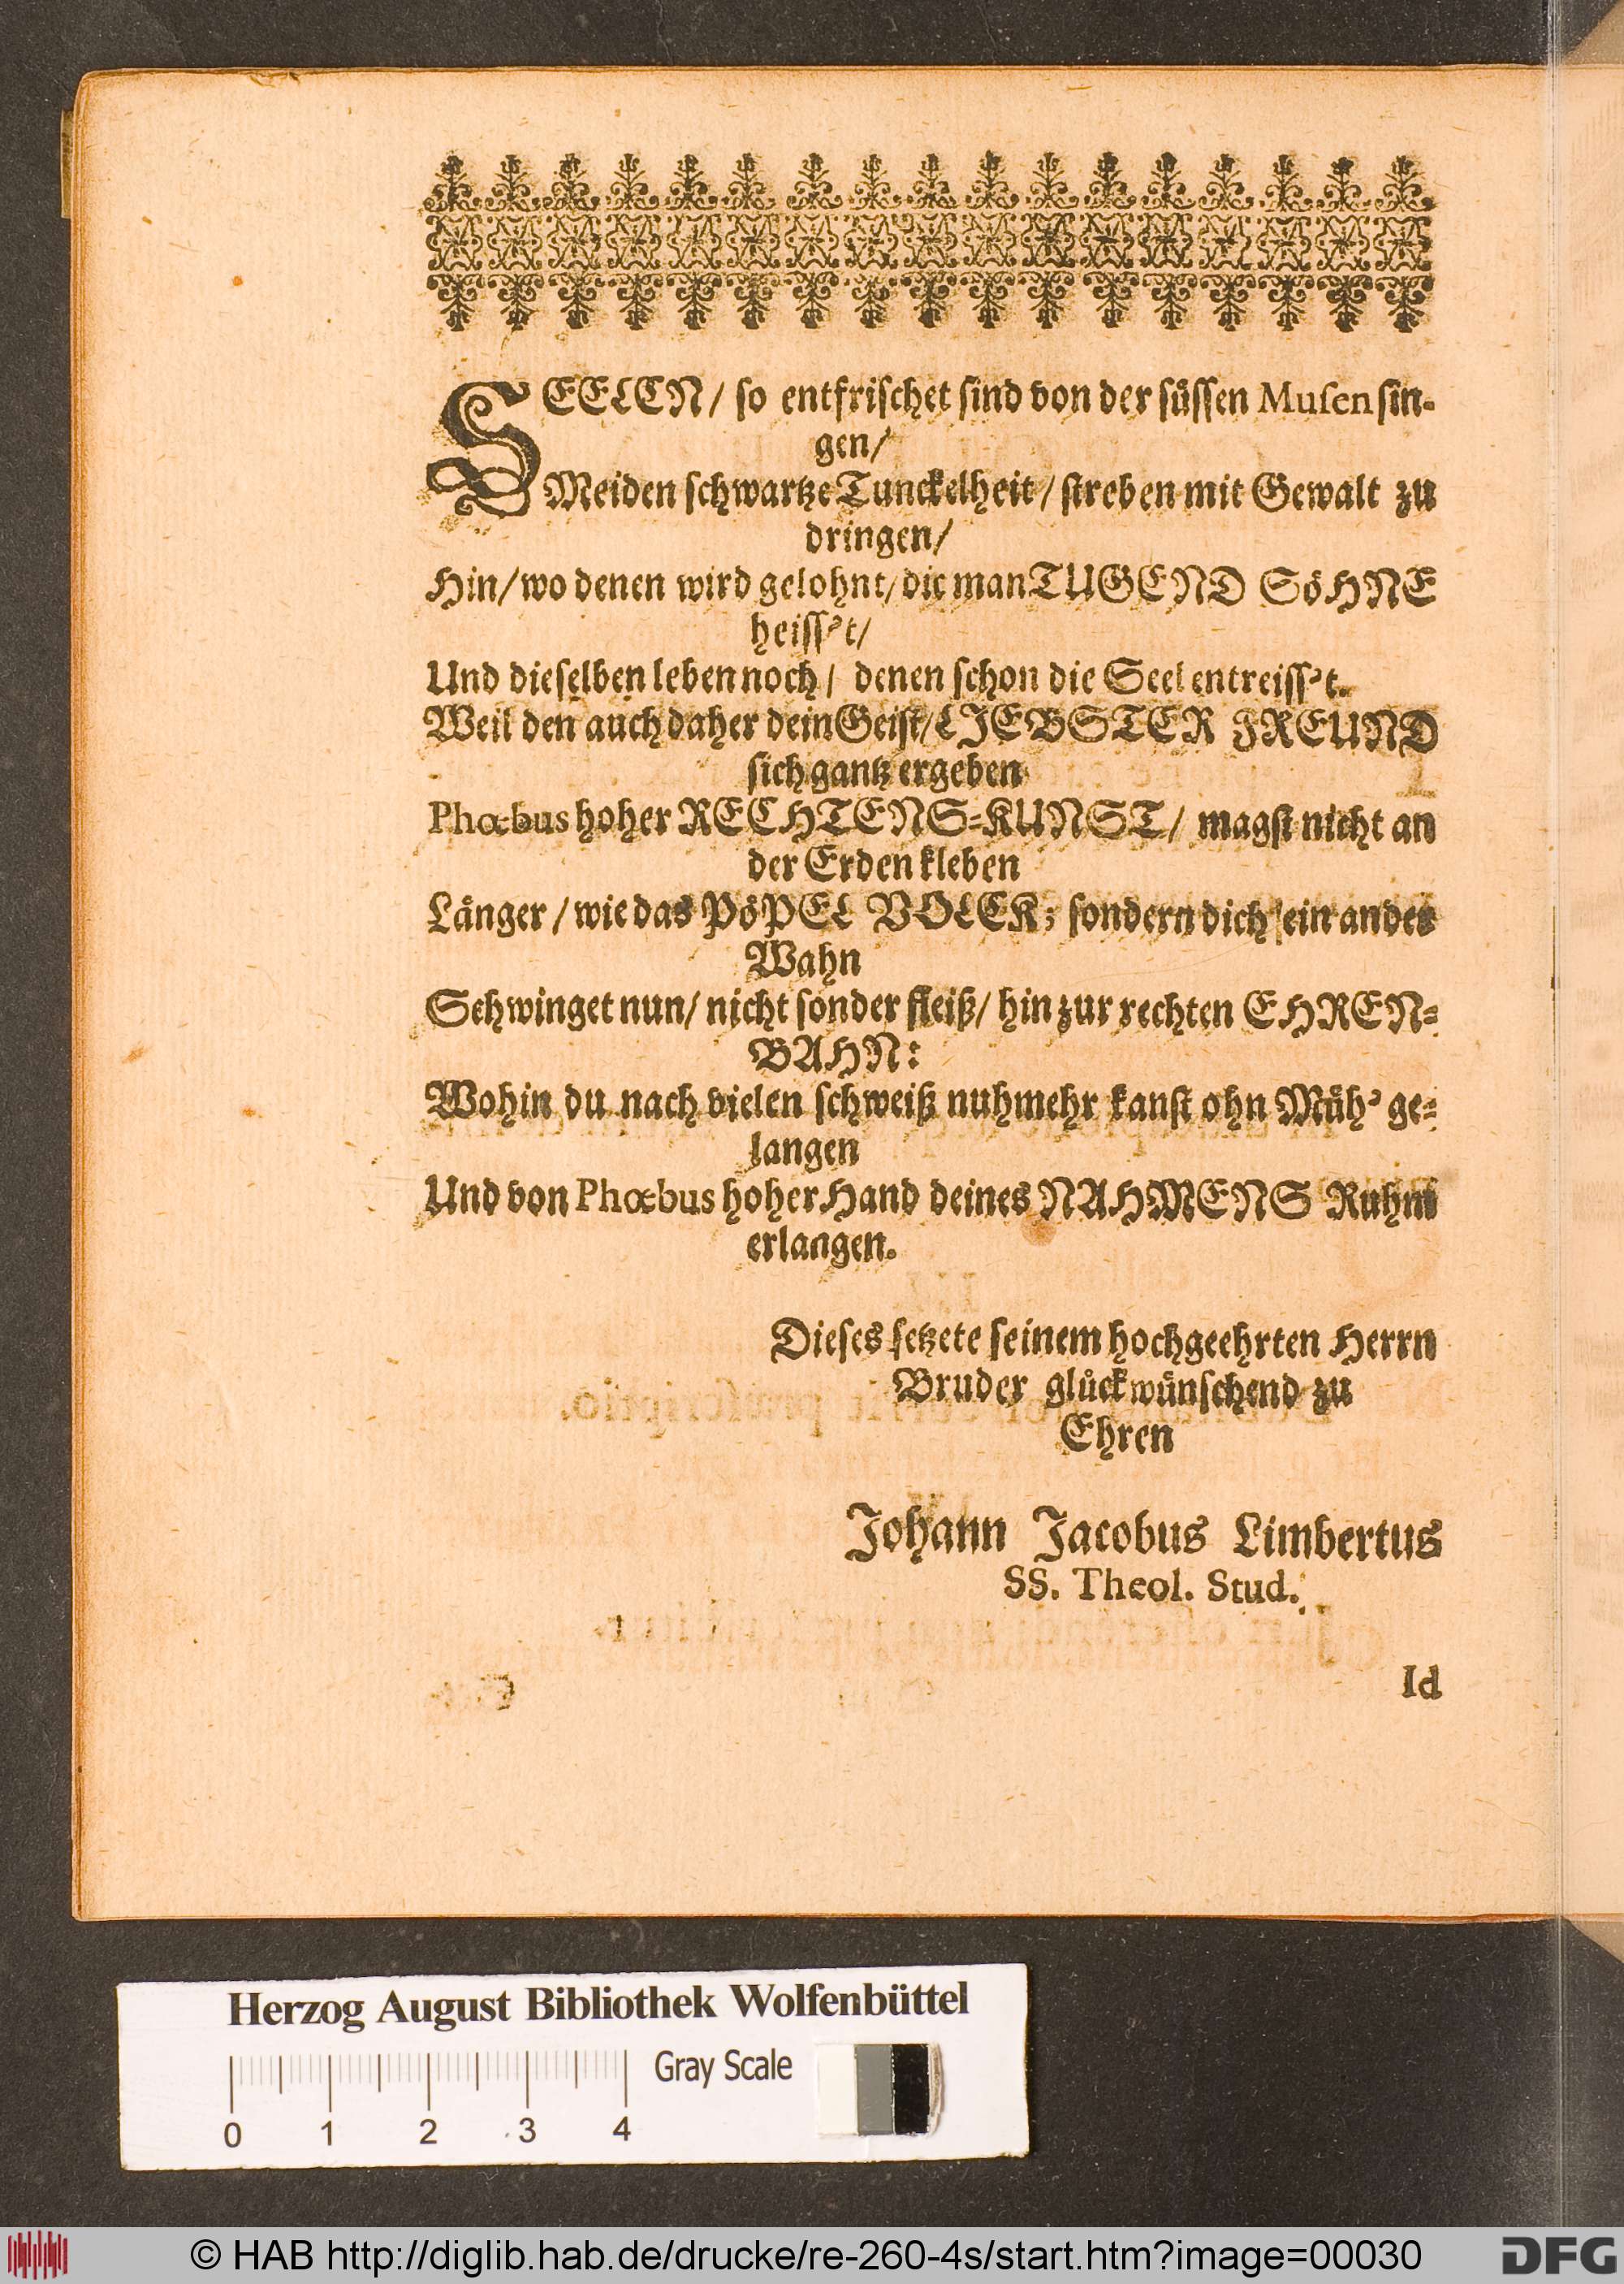 SEELEN/ so entfrischet sind von der süssen Musen sin-
gen/
Meiden schwartze Tunckelheit/ streben mit Gewalt zu
dringen/
Hin/ wo denen wird gelohnt/ die man TUGEND SöHNE
heiss't/
Und dieselben leben noch/ denen schon die Seel entreiss't.
Weil den auch daher dein Geist/ LIEBSTER FREUND
sich gantz ergeben
Phœbus hoher RECHTENS-KUNST/ magst nicht an
der Erden kleben
Länger/ wie das PöPEL VOLCK; sondern dich ein ander
Wahn
Schwinget nun/ nicht sonder fleiß/ hin zur rechten EHREN-
BAHN:
Wohin du nach vielen schweiß nuhmehr kanst ohn Müh' ge-
langen
Und von Phœbus hoher Hand deines NAHMENS Ruhm
erlangen.
Dieses setzete seinem hochgeehrten Herrn
Bruder glückwünschend zu
Ehren
Johann Jacobus Limbertus
SS. Theol. Stud.
Id
Herzog August Bibliothek Wolfenbüttel
Gray Scale
0 1 2 3 4
© HAB http://diglib.hab.de/drucke/re-260-4s/start.htm?image=00030
DFG